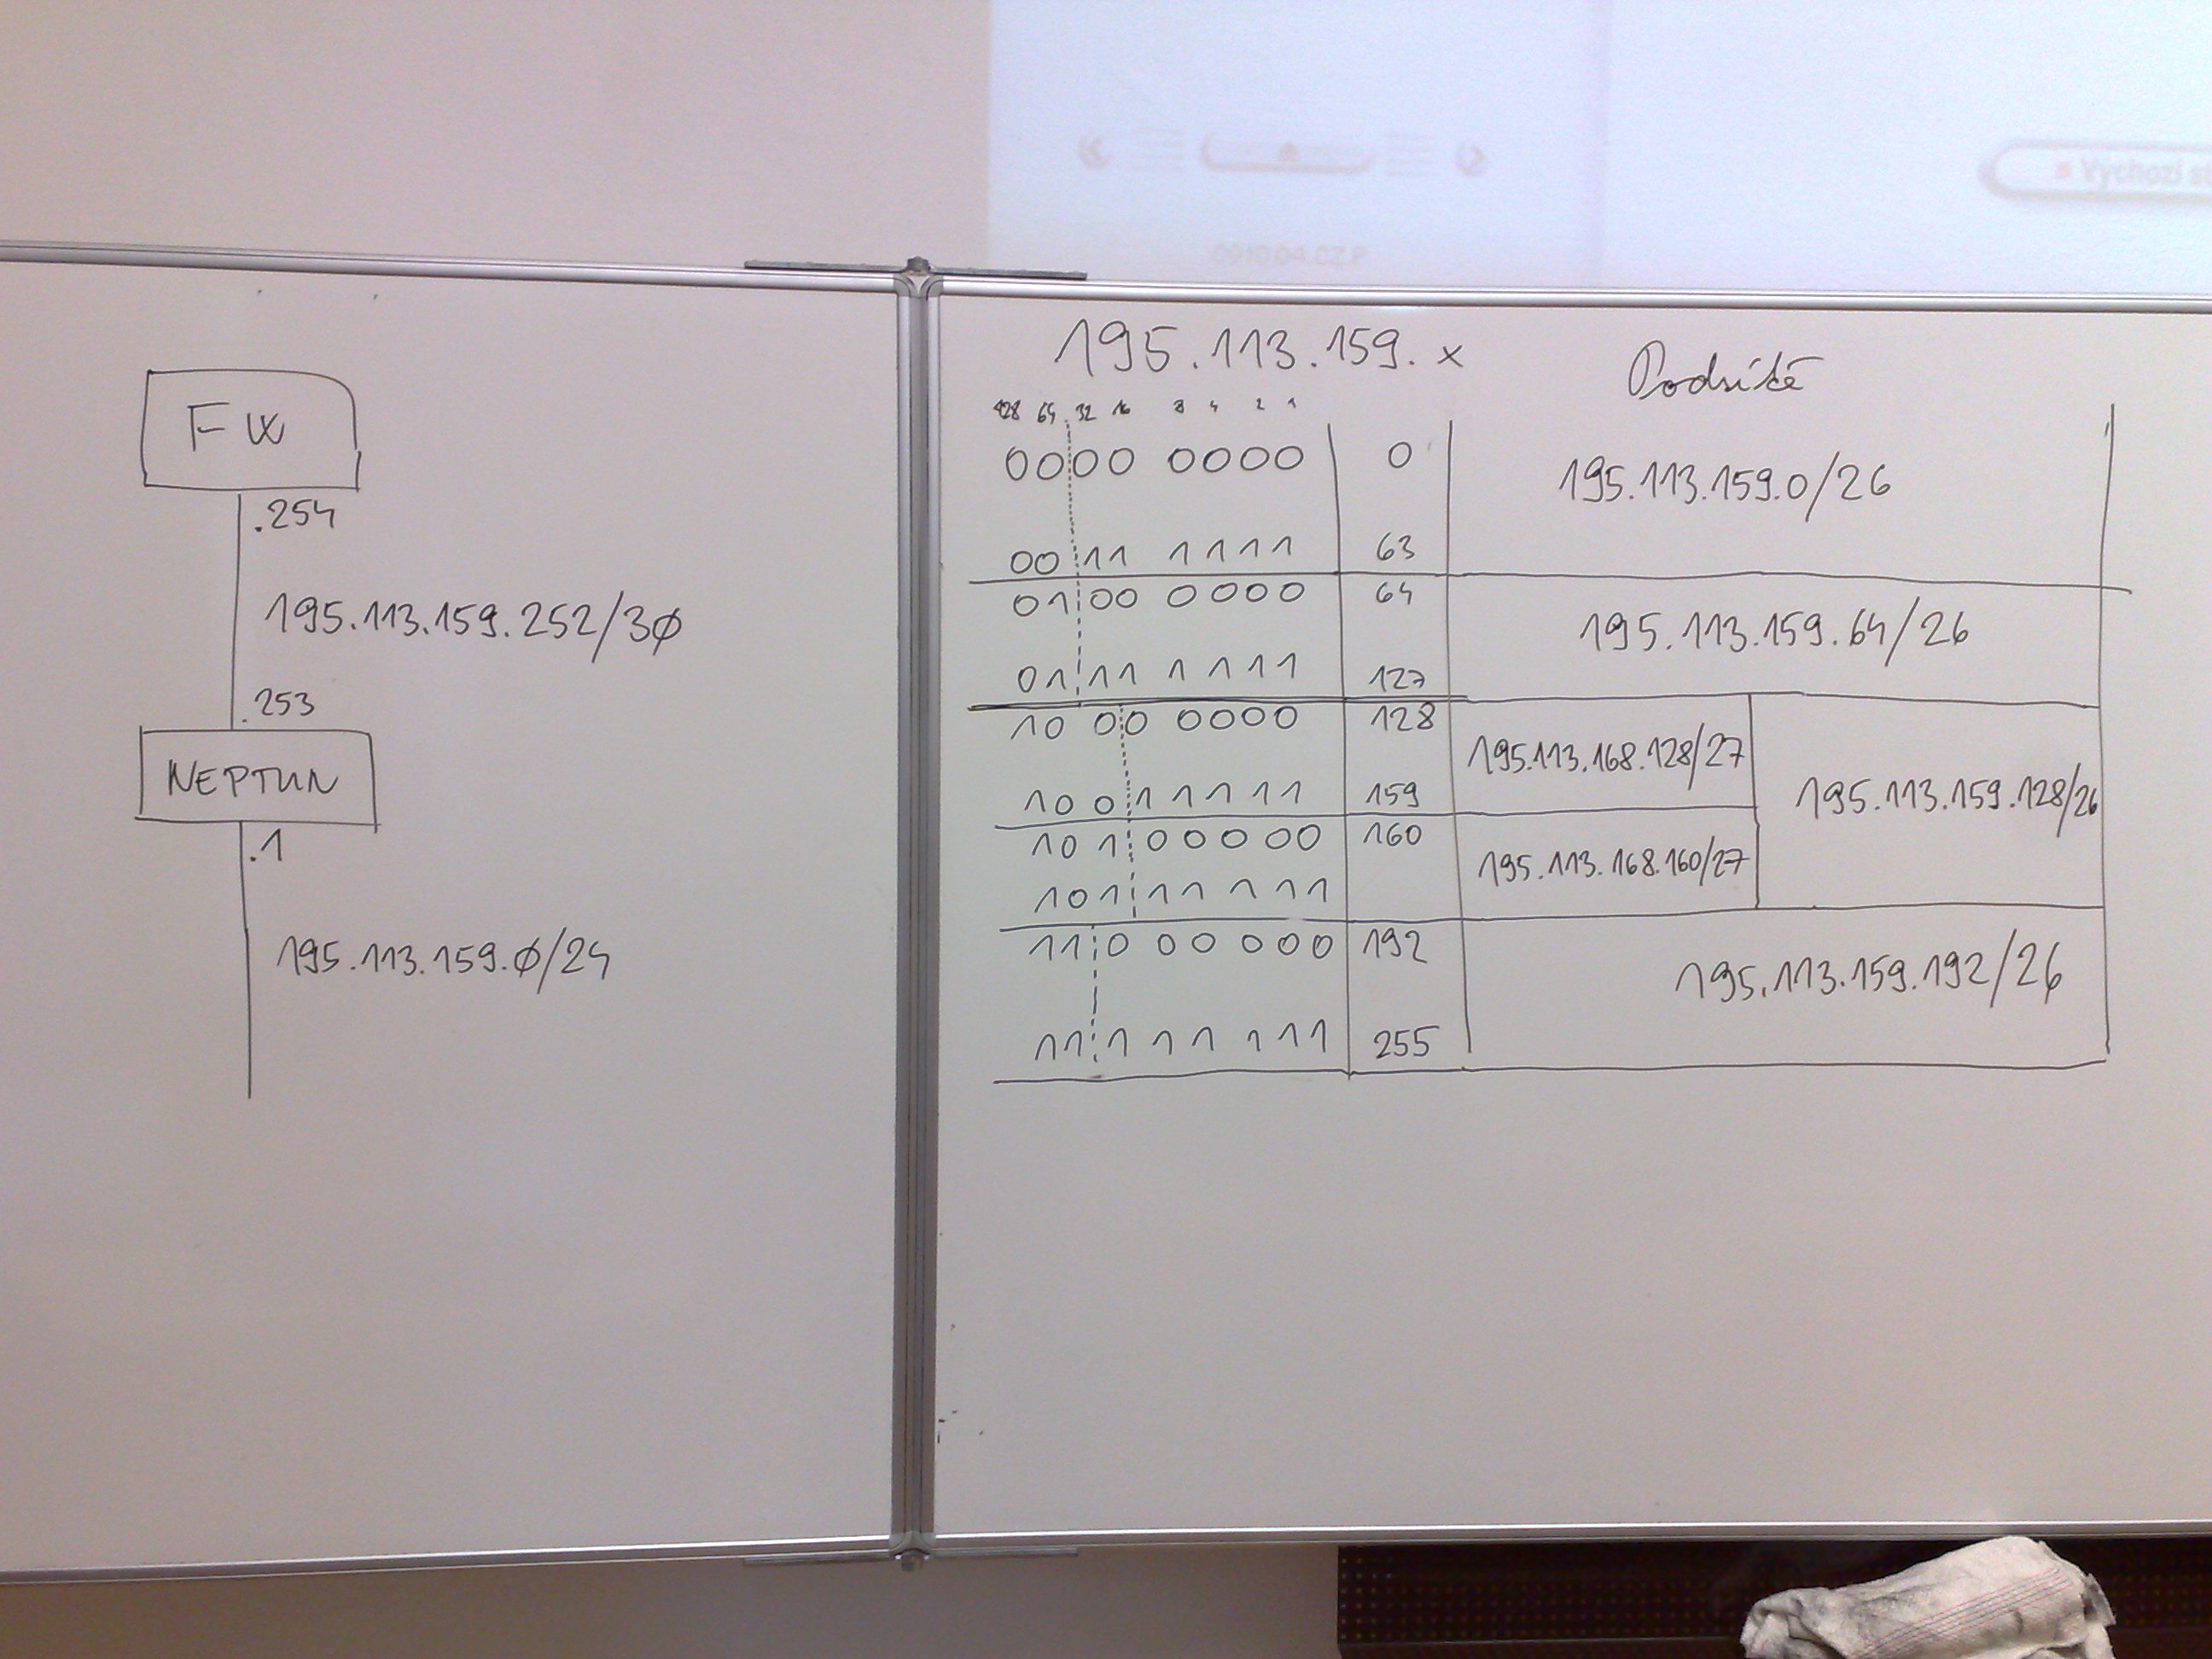 Výchozí
0910.04.CZ.P
FW
.254
195.113.159.252/30
.253
NEPTUN
.1
195.113.159.0/24
195.113.159.x
Podsítě
128 64 32 16 8 4 2 1
0000 0000 0 195.113.159.0/26
0011 1111 63
0100 0000 64 195.113.159.64/26
0111 1111 127
1000 0000 128 195.113.168.128/27
195.113.159.128/26
10011111 159
10100000 160 195.113.168.160/27
10111111
11000000 192 195.113.159.192/26
11111111 255